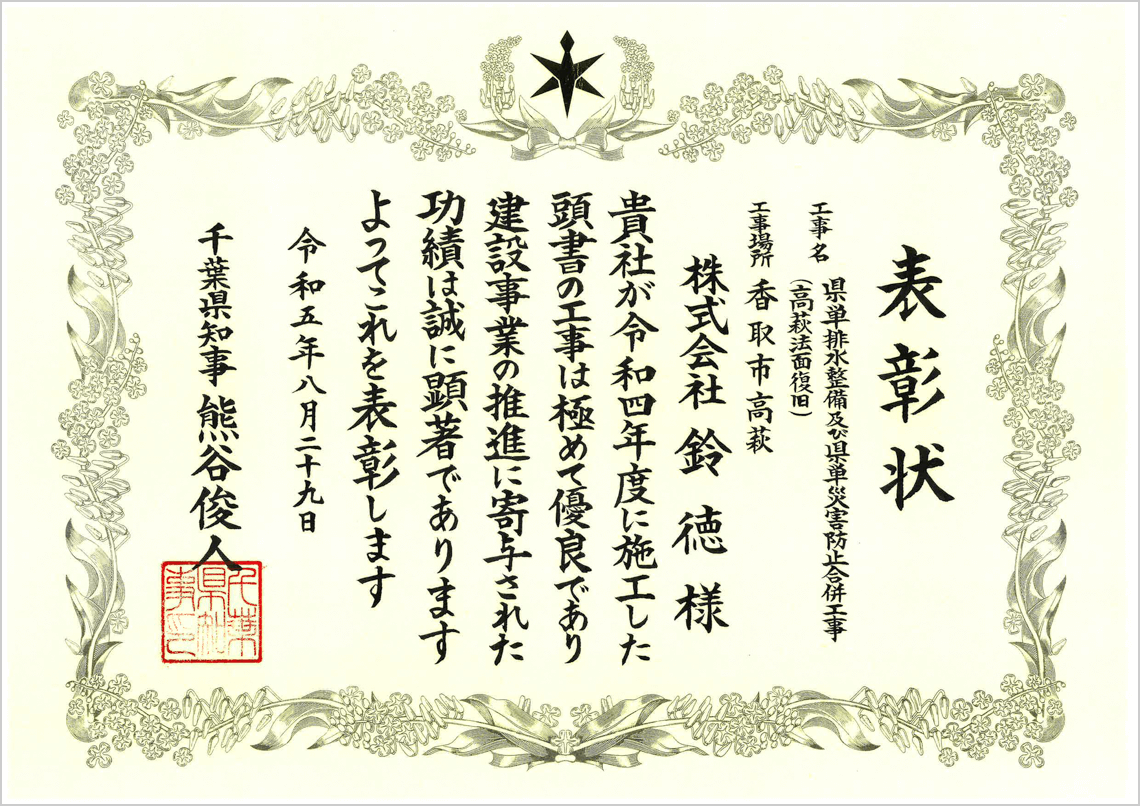 表彰状
工事名
県単排水整備及び県単災害防止合併工事
(高萩法面復旧)
工事場所 香取市高萩
株式会社 鈴徳 様
貴社が令和四年度に施工した
頭書の工事は極めて優良であり
建設事業の推進に寄与された
功績は誠に顕著であります
よってこれを表彰します
令和五年八月二十九日
千葉県知事 熊谷俊人
千葉
県知
事印